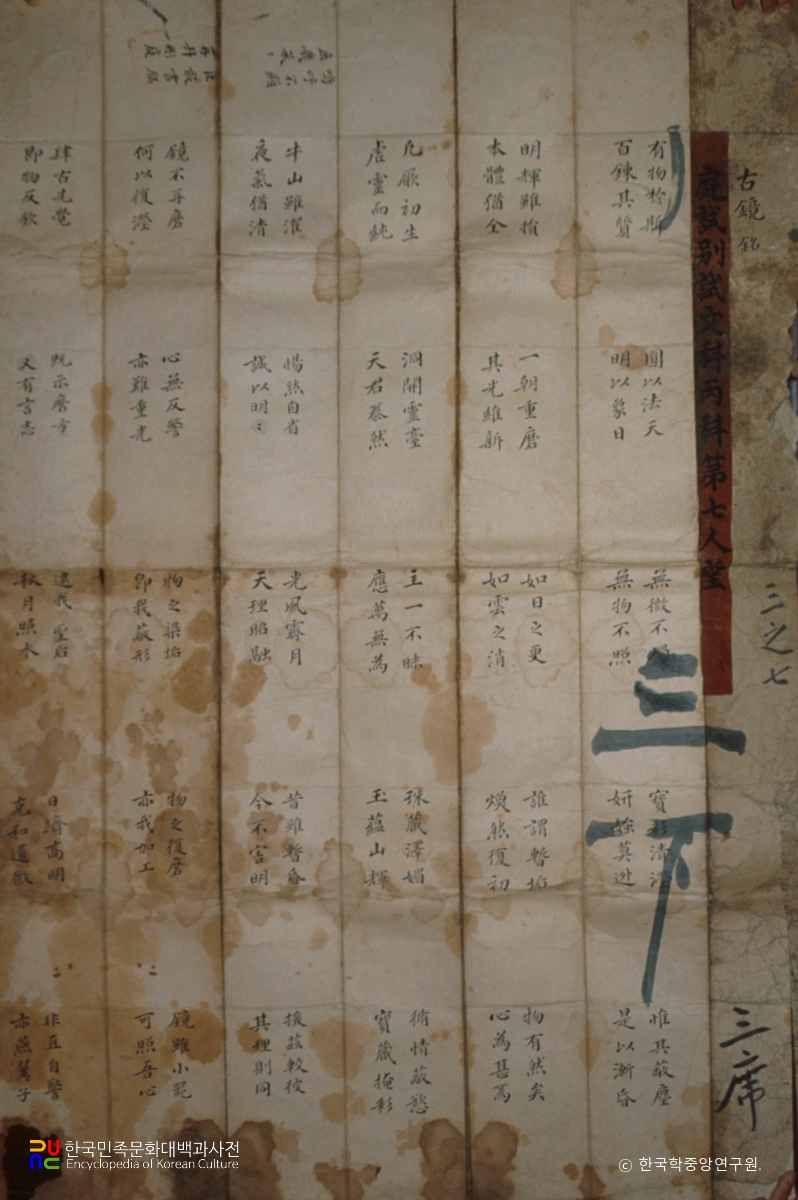 古鏡銘
三之七
三席
庭試別試文科丙科第七人望
三下
有物於斯
百鍊其質
圓以法天
明以象日
無微不
無物不照
寶彩清
妍媸莫逃
惟其蔽塵
是以漸昏
明輝雖揜
本體猶全
一朝重磨
其光維新
如日之更
如雲之消
誰謂暫垢
煥然復初
物有然矣
心為甚焉
凡厥初生
虛靈而純
洞開靈臺
天君泰然
主一不昧
應萬無為
珠藏澤媚
玉蘊山輝
徇情蔽慾
寶藏掩彩
嗚呼不顯
牛山雖濯
夜氣猶清
惕然自省
誠以明〻
光風霽月
天理昭融
昔雖暫昏
今不害明
援茲較彼
其理則同
鏡不再磨
何以復瀅
心無反警
亦難重光
物之染垢
即我蔽形
物之復磨
亦我加工
鏡雖小
可照吾心
肆古先覺
即物反欽
既示磨方
又有言志
逮我聖后
秋月照水
日躋高明
克和道徵
非直自警
亦燕翼子
한국민족문화대백과사전
Encyclopedia of Korean Culture
© 한국학중앙연구원.